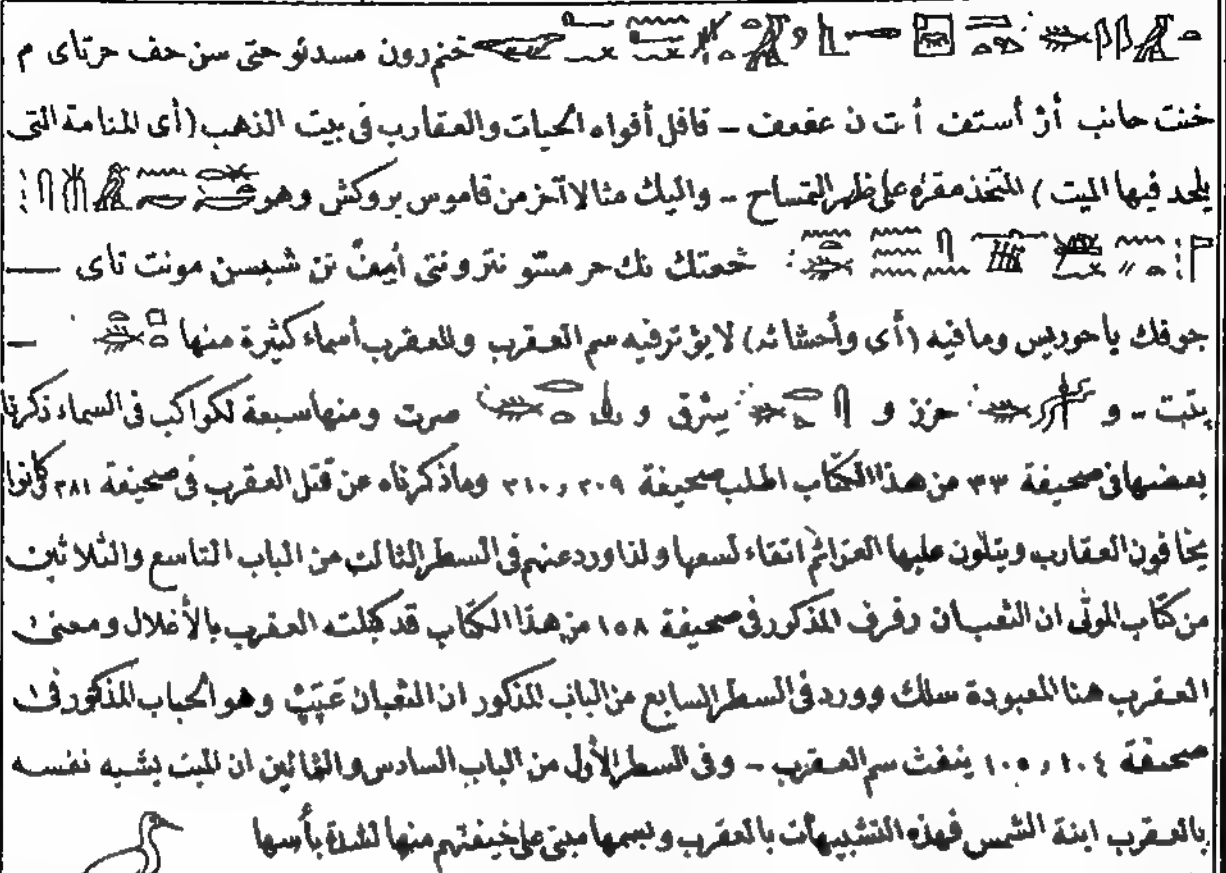 خنم رون مسدئو حتى سن حف حرتاى م
خنت حانب أرْ أستف أ ت ن عقعف - قافل أفواه الحيات والعقارب فى بيت الذهب (أى المنامة التى
يلحد فيها الميت) المتخذ مقره على ظهر التمساح - واليك مثالا آخر من قاموس بروكش وهو
خعتك نك حر مستو نترو نتى أيمفْ تن شبسن مونت تاى —
جوفك ياحوريس وما فيه (أى وأحشائه) لا يؤثر فيه سم العقرب وللعقرب أسماء كثيرة منها —
پتت - و حرز و يترقى و صرت ومنها سبعة لكواكب فى السماء ذكرنا
بعضها فى صحيفة ٣٣ من هذا الكتاب اطلب صحيفة ٢٠٩ و ٢١٠ وماذكرناه عن قتل العقرب فى صحيفة ٢٨١ كانوا
يخافون العقارب ويتلون عليها العزائم اتقاء لسعها ولذا ورد عنهم فى السطر الثالث من الباب التاسع والثلاثين
من كتاب الموتى ان الثعبان رفرف المذكور فى صحيفة ١٥٨ من هذا الكتاب قد كبلته العقرب بالأغلال ومعنى
العقرب هنا المعبودة سلك وورد فى السطر السابع من الباب المذكور ان الثعبان عَبَبْ وهو الحباب المذكور فى
صحيفة ١٠٤ و ١٠٥ ينفث سم العقرب - وفى السطر الأول من الباب السادس والثمانين ان الميت يشبه نفسه
بالعقرب ابنة الشمس فهذه التشبيهات بالعقرب وبسمها مبنى على خيفتهم منها لشدة بأسها